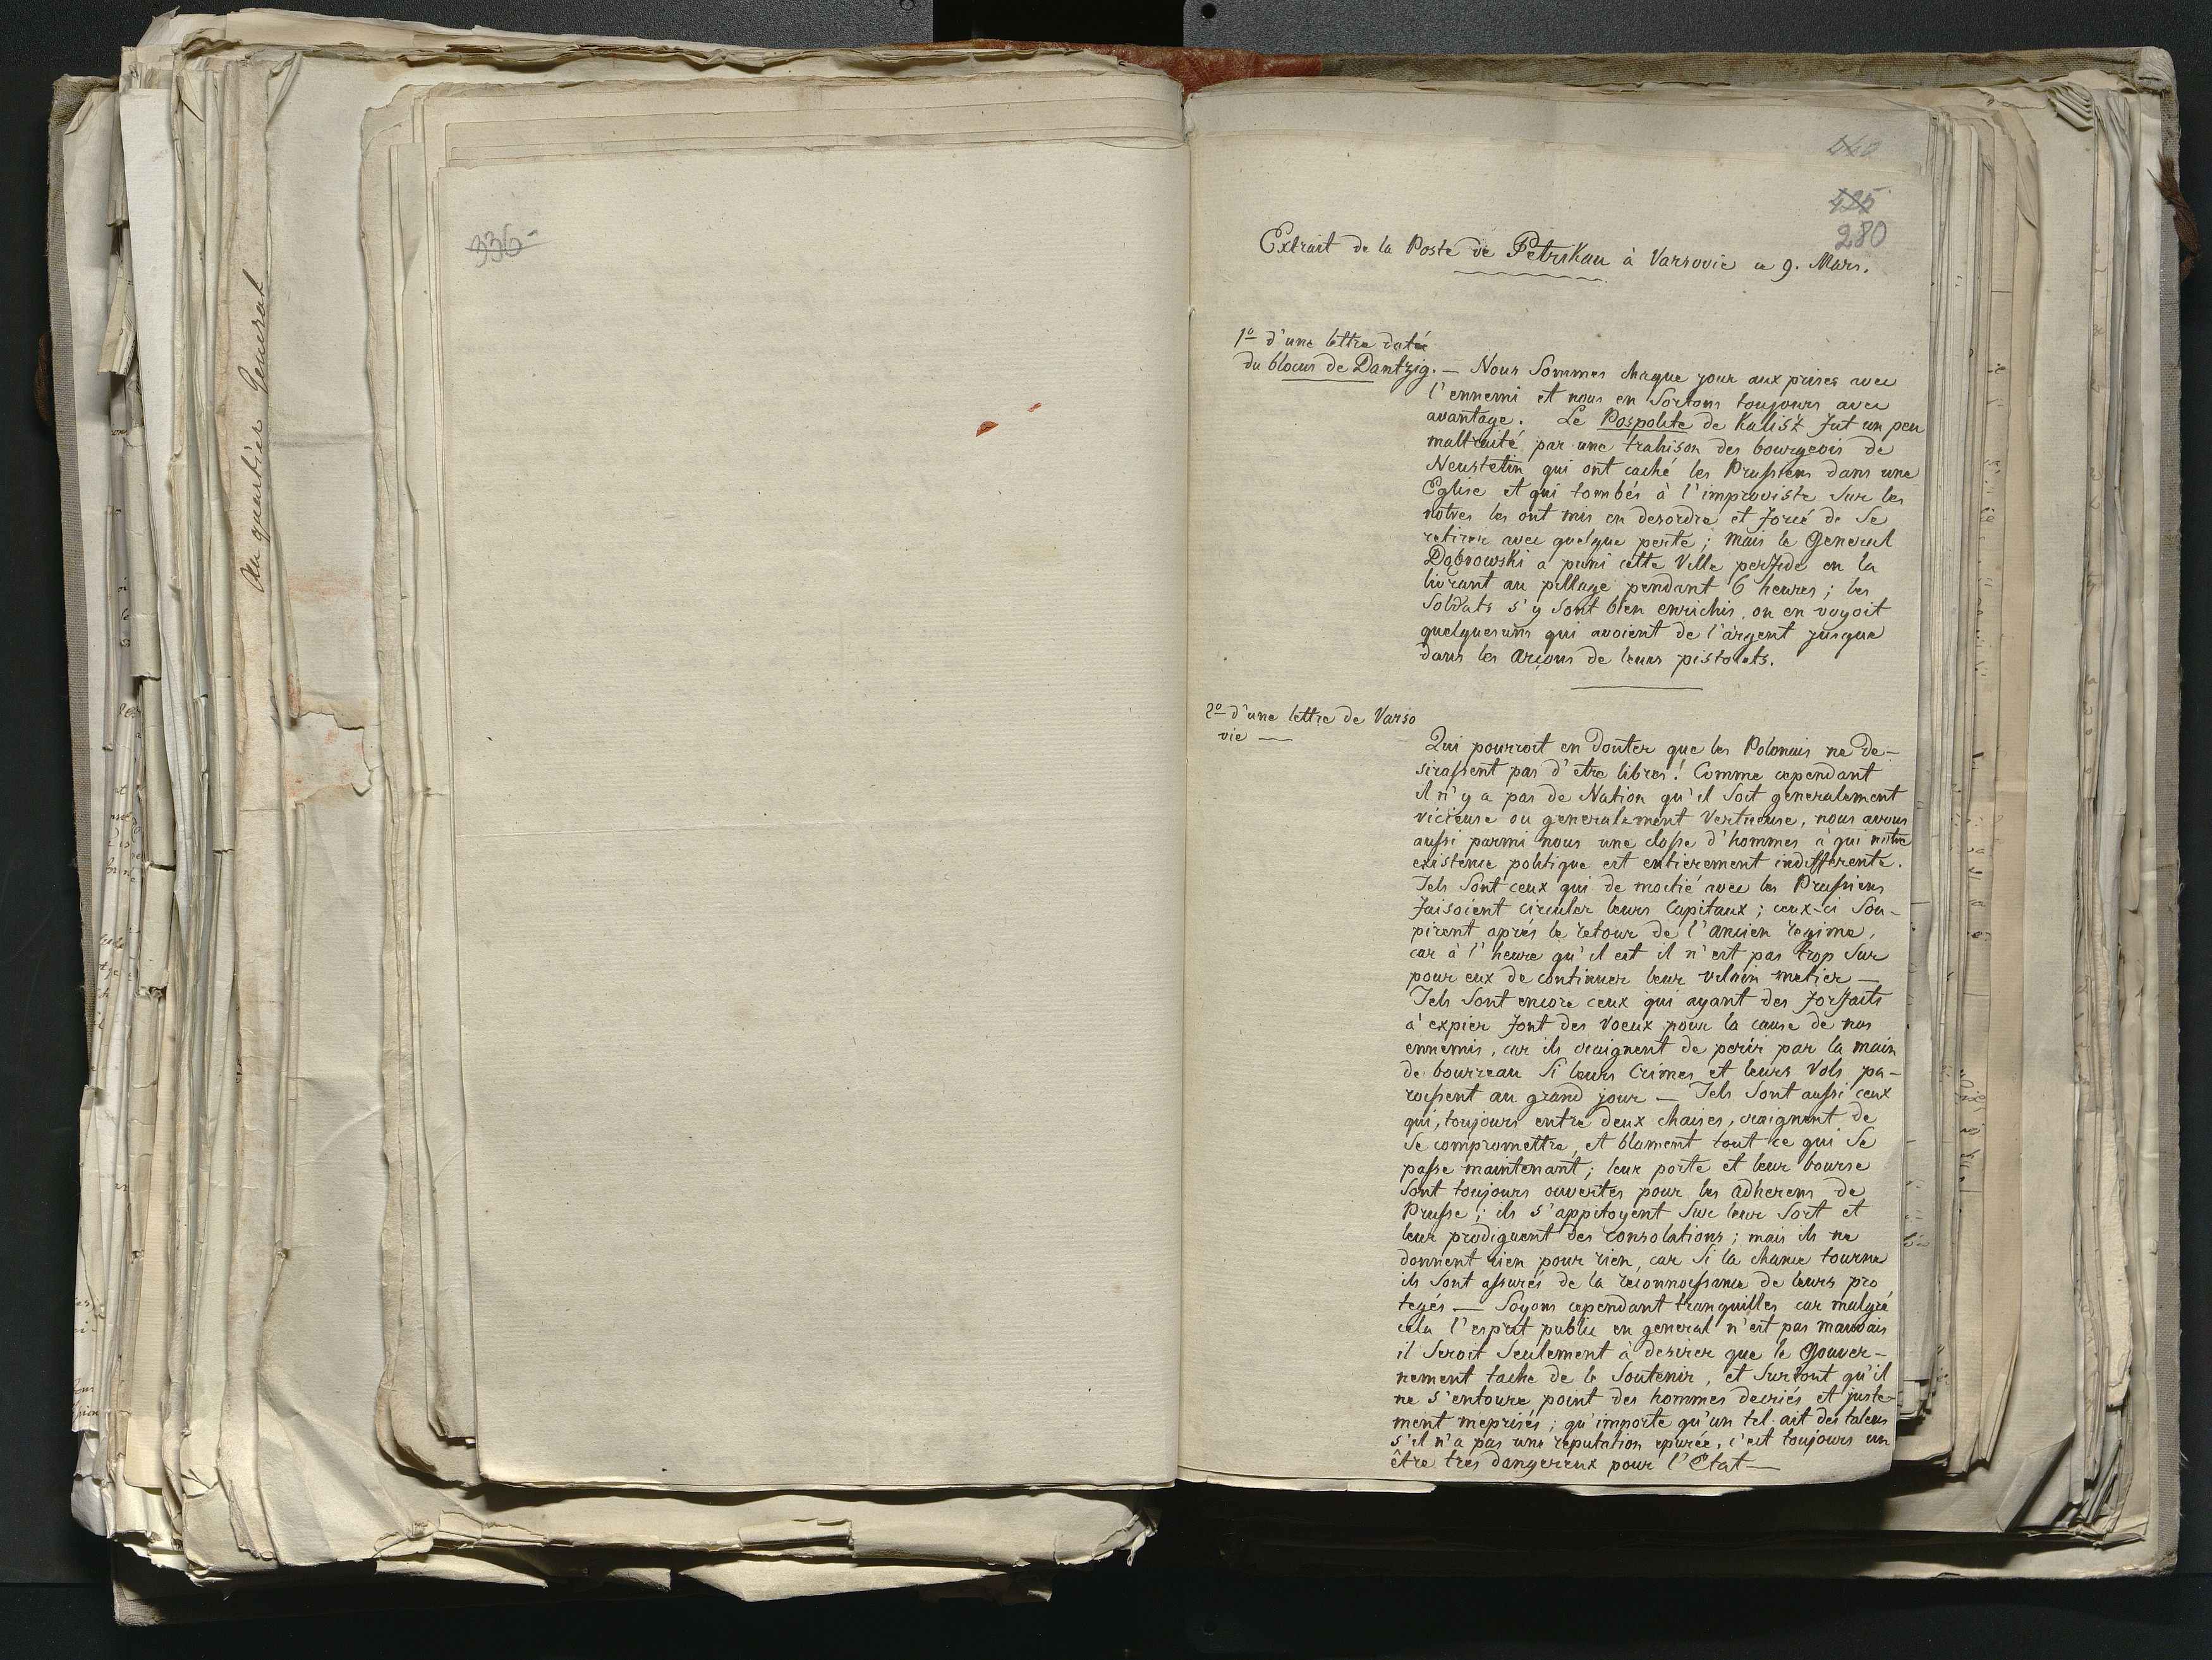 Au quartier General
336
460
425
280
Extrait de la Poste de Petrikau à Varsovie ce 9. Mars.
1º d'une lettre datée
du blocus de Dantzig. — Nous Sommes chaque jour aux prises avec
l'ennemi et nous en Sortons toujours avec
avantage. Le Pospolite de Kalisz fut un peu
maltraité par une trahison des bourgeois de
Neustetin qui ont caché les Prussiens dans une
Eglise et qui tombés à l'improviste Sur les
notres les ont mis en desordre et forcé de Se
retirer avec quelque perte; mais le General
Dąbrowski a puni cette Ville perfide en la
livrant au pillage pendant 6 heures; les
Soldats s'y Sont bien enrichis, on en voyoit
quelquesuns qui avoient de l'argent jusque
dans les Arçons de leurs pistolets.
2º d'une lettre de Varso
vie —
Qui pourroit en Douter que les Polonais ne de-
sirassent pas d'etre libres! Comme cependant
il n'y a pas de Nation qu'il Soit generalement
vicieuse ou generalement Vertueuse, nous avons
aussi parmi nous une classe d'hommes à qui notre
existence politique est entierement indifferente.
Tels Sont ceux qui de moitié avec les Prussiens
faisoient circuler leurs Capitaux; ceux-ci Sou-
pirent après le retour de l'ancien regime,
car à l'heure qu'il est il n'est pas trop Sur
pour eux de continuer leur vilain metier —
Tels Sont encore ceux qui ayant des forfaits
à expier font des voeux pour la cause de nos
ennemis, car ils craignent de perir par la main
de bourreau Si leurs Crimes et leurs Vols pa-
roissent au grand jour — Tels Sont aussi ceux
qui, toujours entre deux chaises, craignent de
Se compromettre, et blament tout ce qui Se
passe maintenant; leur porte et leur bourse
Sont toujours ouvertes pour les adherens de
Prusse; ils s'appitoyent Sur leur Sort et
leur prodiguent des consolations; mais ils ne
donnent rien pour rien, car Si la chance tourne
ils Sont assurés de la reconnoissance de leurs pro
tegés — Soyons cependant tranquilles car malgré
cela l'esprit public en general n'est pas mauvais
il Seroit Seulement à desirer que le Gouver-
nement tache de le Soutenir, et Surtout qu'il
ne s'entoure point des hommes decriés et juste-
ment meprisés; qu'importe qu'un tel ait des talens
s'il n'a pas une reputation epurée, c'est toujours un
être tres dangereux pour l'Etat —